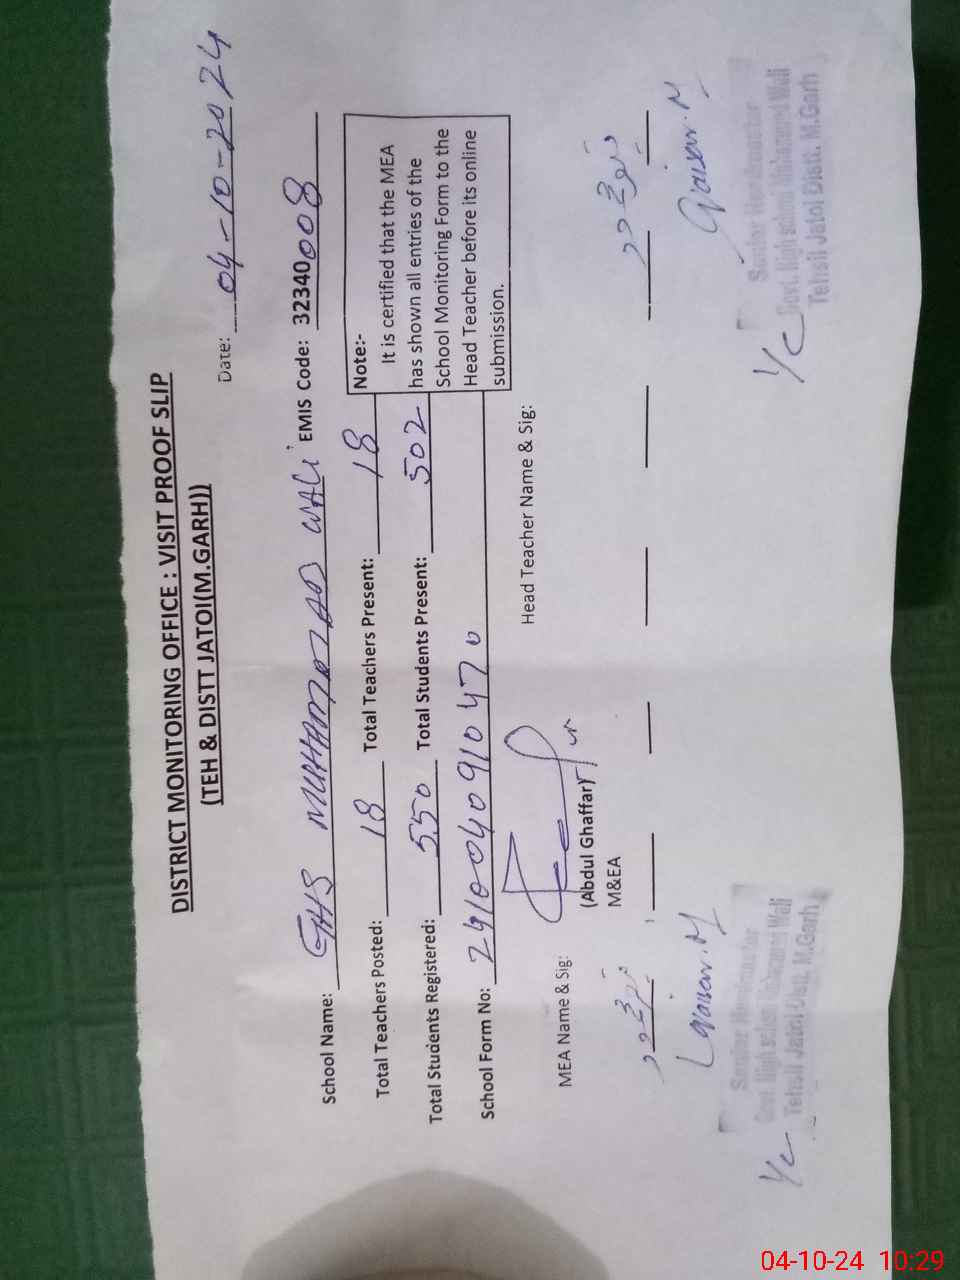 DISTRICT MONITORING OFFICE : VISIT PROOF SLIP
(TEH & DISTT JATOI(M.GARH))
Date: 04-10-2024
School Name: GHS MUHAMMAD WALI EMIS Code: 32340008
Total Teachers Posted: 18 Total Teachers Present: 18
Total Students Registered: 550 Total Students Present: 502
School Form No: 2410040910470
Note:-
It is certified that the MEA
has shown all entries of the
School Monitoring Form to the
Head Teacher before its online
submission.
MEA Name & Sig: Head Teacher Name & Sig:
(Abdul Ghaffar)
M&EA
I/C
Senior Headmaster
Govt. High school Muhammad Wali
Tehsil Jatoi Distt. M.Garh
I/C
Senior Headmaster
Govt. High school Muhammad Wali
Tehsil Jatoi Distt. M.Garh
04-10-24 10:29